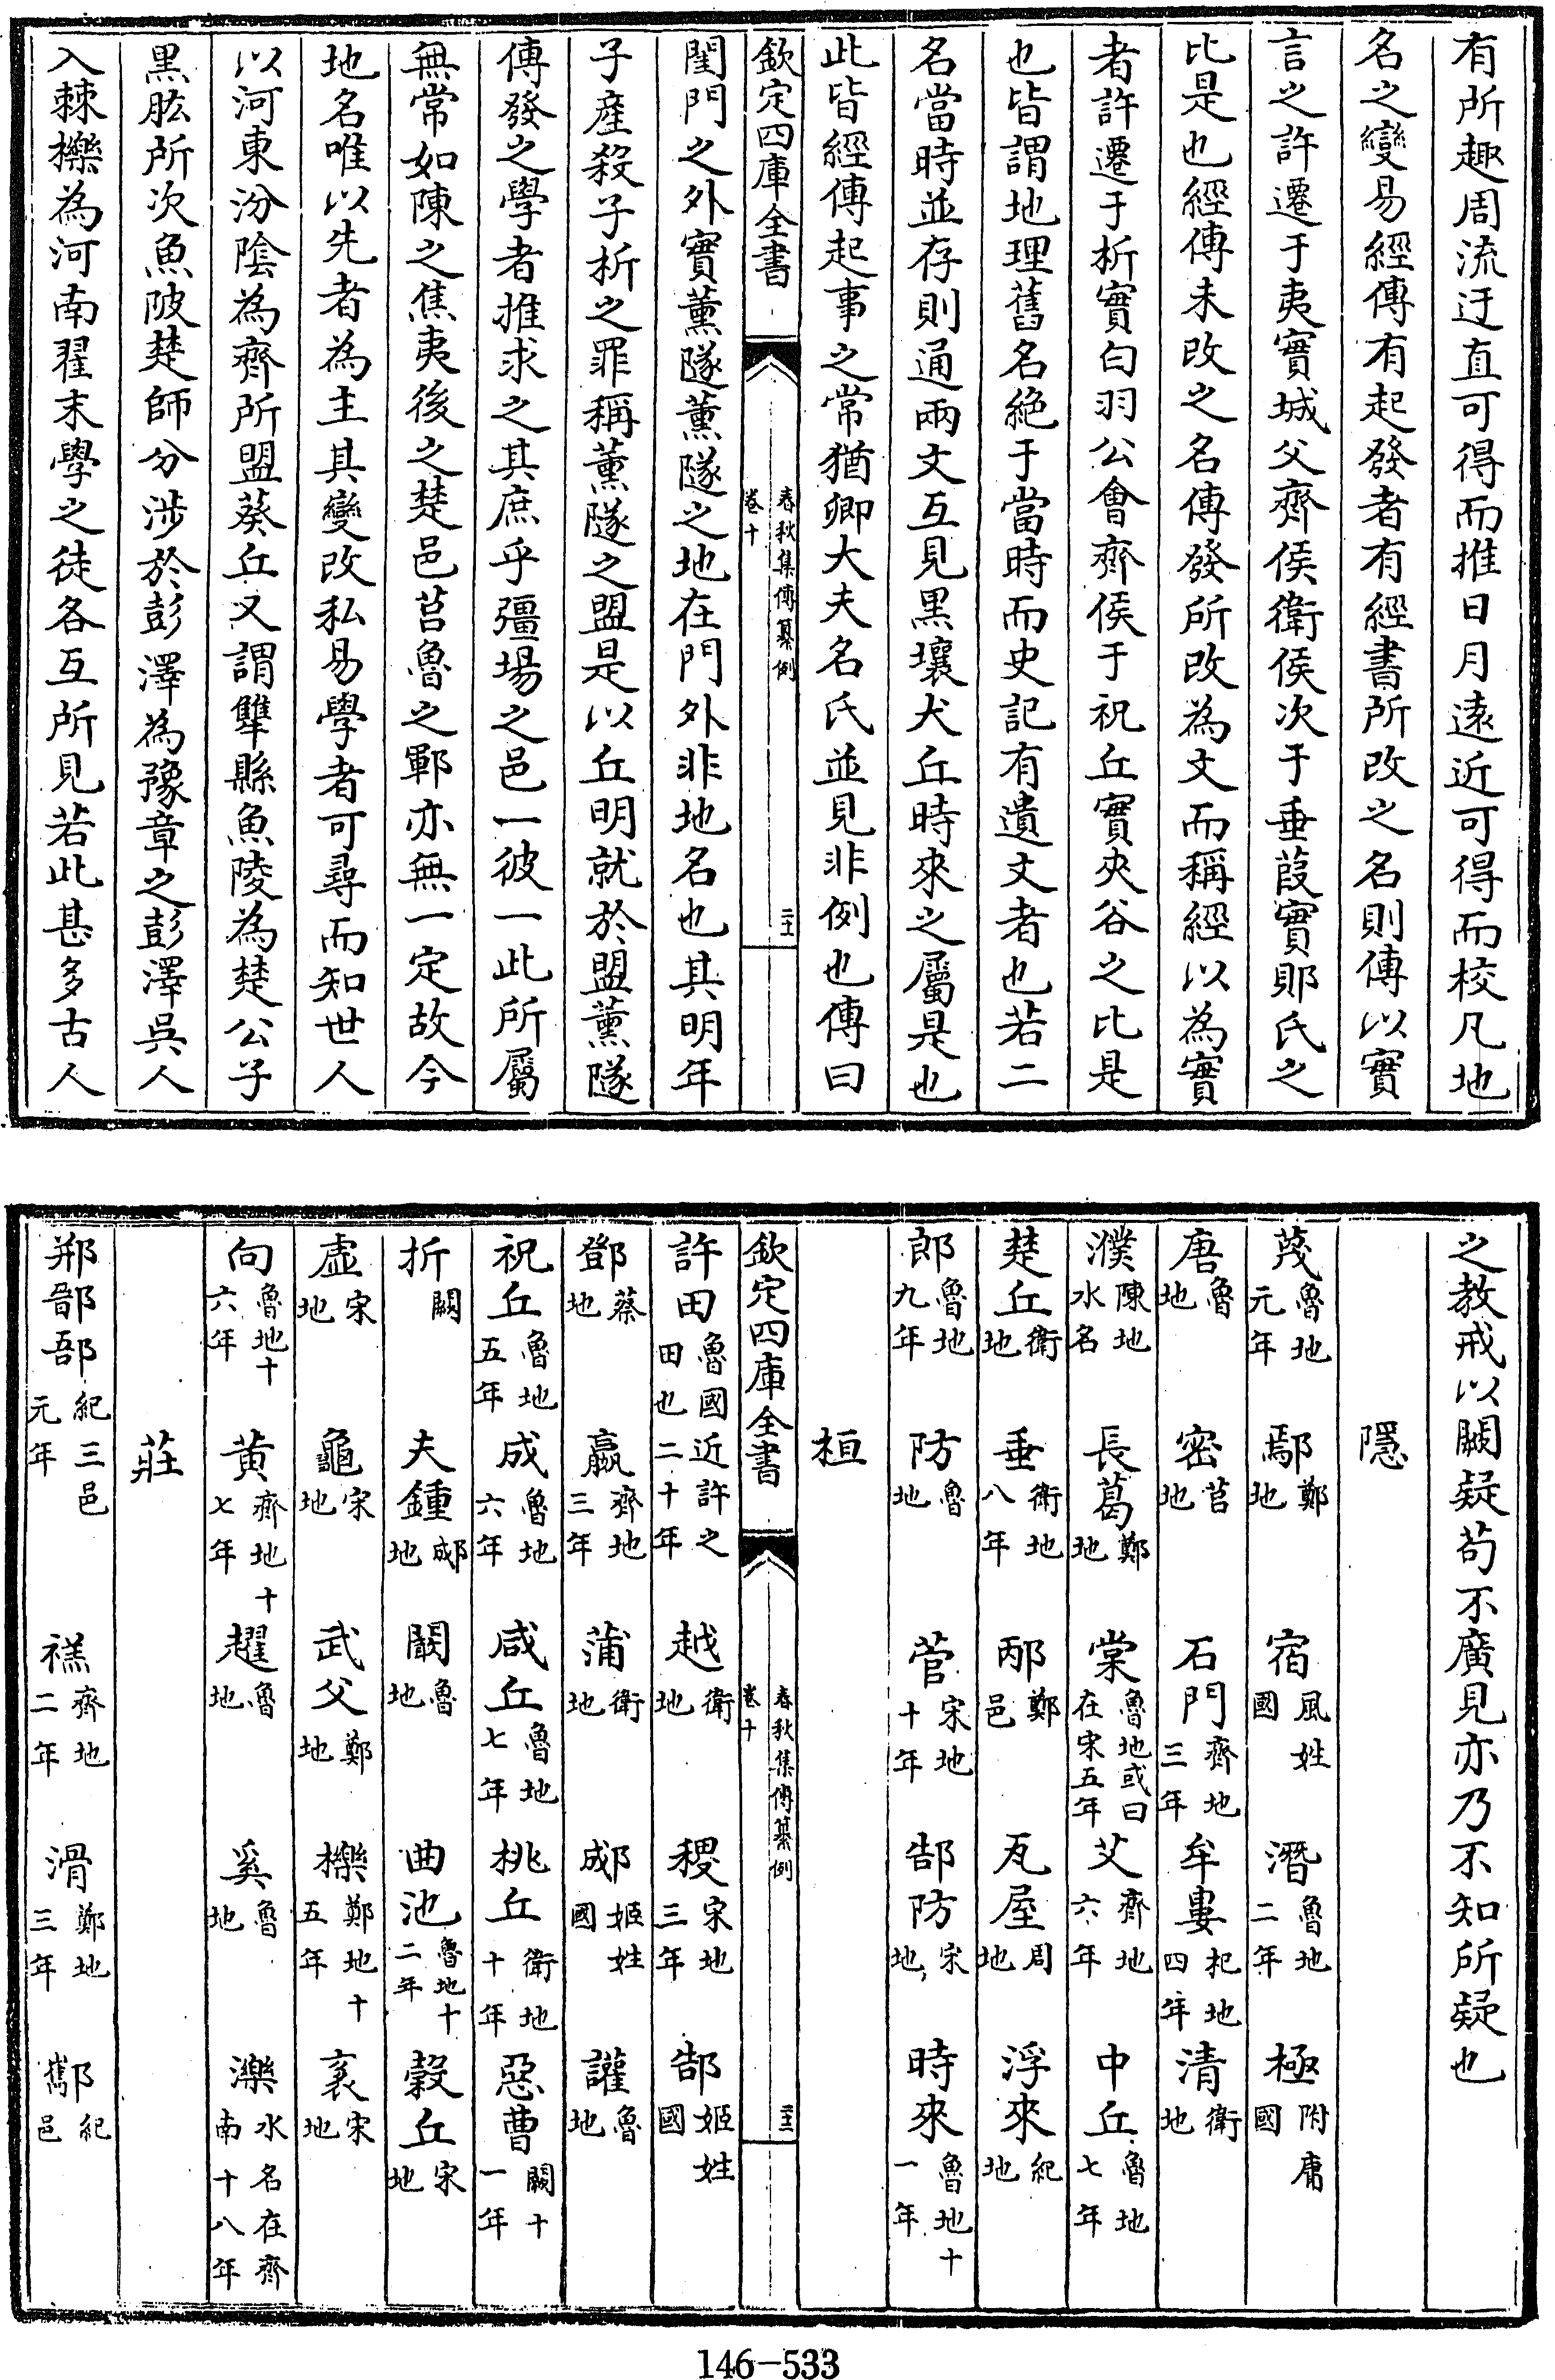 有所趣周流迂直可得而推日月遠近可得而校凡地
名之變易經傳有起發者有經書所改之名則傳以實
言之許遷于夷實城父齊侯衛侯次于垂葭實郥氏之
比是也經傳未改之名傳發所改為文而稱經以為實
者許遷于析實白羽公會齊侯于祝丘實夾谷之比是
也皆謂地理舊名絶于當時而史記有遺文者也若二
名當時並存則通兩文互見黑壤犬丘時來之屬是也
此皆經傳起事之常猶卿大夫名氏並見非例也傳曰
欽定四庫全書
春秋集傳纂例
卷十
閨門之外實薫隧薫隧之地在門外非地名也其明年
子産殺子析之罪稱薫隧之盟是以丘明就於盟薫隧
傳發之學者推求之其庶乎彊場之邑一彼一此所屬
無常如陳之焦夷後之楚邑莒魯之鄆亦無一定故今
地名唯以先者為主其變改私易學者可尋而知世人
以河東汾陰為齊所盟葵丘又謂犨縣魚陵為楚公子
黒肱所次魚陂楚師分涉於彭澤為豫章之彭澤吳人
入棘櫟為河南翟末學之徒各互所見若此甚多古人
之教戒以闕疑苟不廣見亦乃不知所疑也
隱
蔑魯地元年 鄢鄭地 宿風姓國 潛魯地二年 極附庸國
唐魯地 密莒地 石門齊地三年 牟婁杞地四年 清衛地
濮陳地水名 長葛鄭地 棠魯地或曰在宋五年 艾齊地六年 中丘魯地七年
楚丘衛地 垂衛地八年 邴鄭邑 瓦屋周地 浮來紀地
郎魯地九年 防魯地 菅宋地十年 郜防宋地 時來魯地十一年
桓
欽定四庫全書
春秋集傳纂例
卷十
許田魯國近許之田也二十年 越衛地 稷宋地三年 郜姬姓國
鄧蔡地 嬴齊地三年 蒲衛地 郕姬姓國 讙魯地
祝丘魯地五年 成魯地六年 咸丘魯地七年 桃丘衛地十年 惡曹闕十一年
折闕 夫鍾郕地 闞魯地 曲池魯地十二年 穀丘宋地
虚宋地 龜宋地 武父鄭地 櫟鄭地十五年 袲宋地
向魯地十六年 黄齊地十七年 趡魯地 奚魯地 濼水名在齊南十八年
莊
郱鄑郚紀三邑元年 禚齊地二年 滑鄭地三年 酅紀邑
146-533